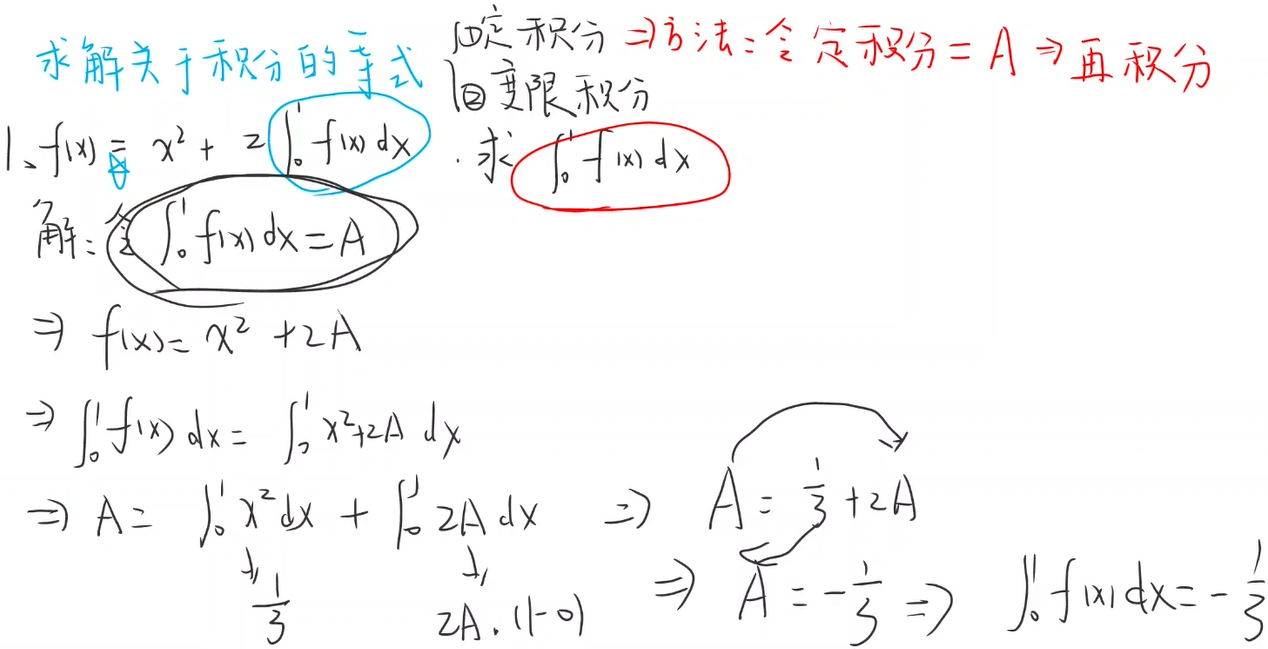 求解关于积分的等式
①定积分 ⇒方法:令定积分=A⇒再积分
②变限积分
1、f(x) = x² + 2∫₀¹ f(x) dx . 求 ∫₀¹ f(x) dx
解:令 ∫₀¹ f(x) dx = A
⇒ f(x) = x² + 2A
⇒ ∫₀¹ f(x) dx = ∫₀¹ x²+2A dx
⇒ A = ∫₀¹ x² dx + ∫₀¹ 2A dx ⇒ A = 1/3 + 2A
1/3 2A·(1-0) ⇒ A = -1/3 ⇒ ∫₀¹ f(x) dx = -1/3